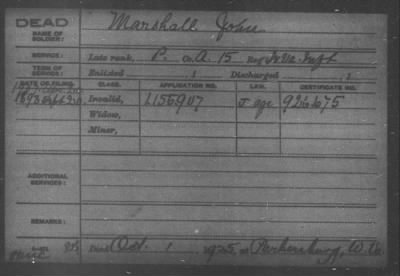 DEAD
NAME OF SOLDIER:
Marshall John
SERVICE:
Late rank, P. Co. A. 15 Reg't W.Va. Inft
TERM OF SERVICE:
Enlisted , 1 Discharged , 1
DATE OF FILING.
CLASS.
APPLICATION NO.
LAW.
CERTIFICATE NO.
1893 Invalid, 1155907 J age 926675
Widow,
Minor,
ADDITIONAL SERVICES:
REMARKS:
Died Oct. 1 1925 at Parkersburg, W. Va.